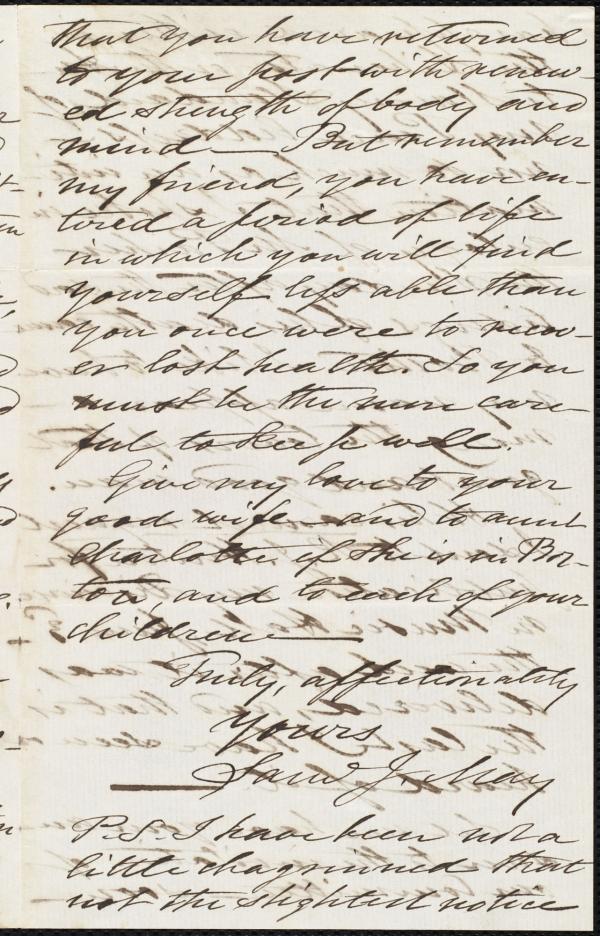 that you have returned
to your post with renew-
ed strength of body and
mind — But remember
my friend, you have en-
tered a period of life
in which you will find
yourself less able than
you once were to recov-
er lost health. So you
must be the more care-
ful to keep well.
Give my love to your
good wife — and to aunt
Charlotte if she is in Bos-
ton, and to each of your
children —
Truly, affectionately
yours
Saml J. May
P.S. I have been not a
little chagrinned that
not the slightest notice